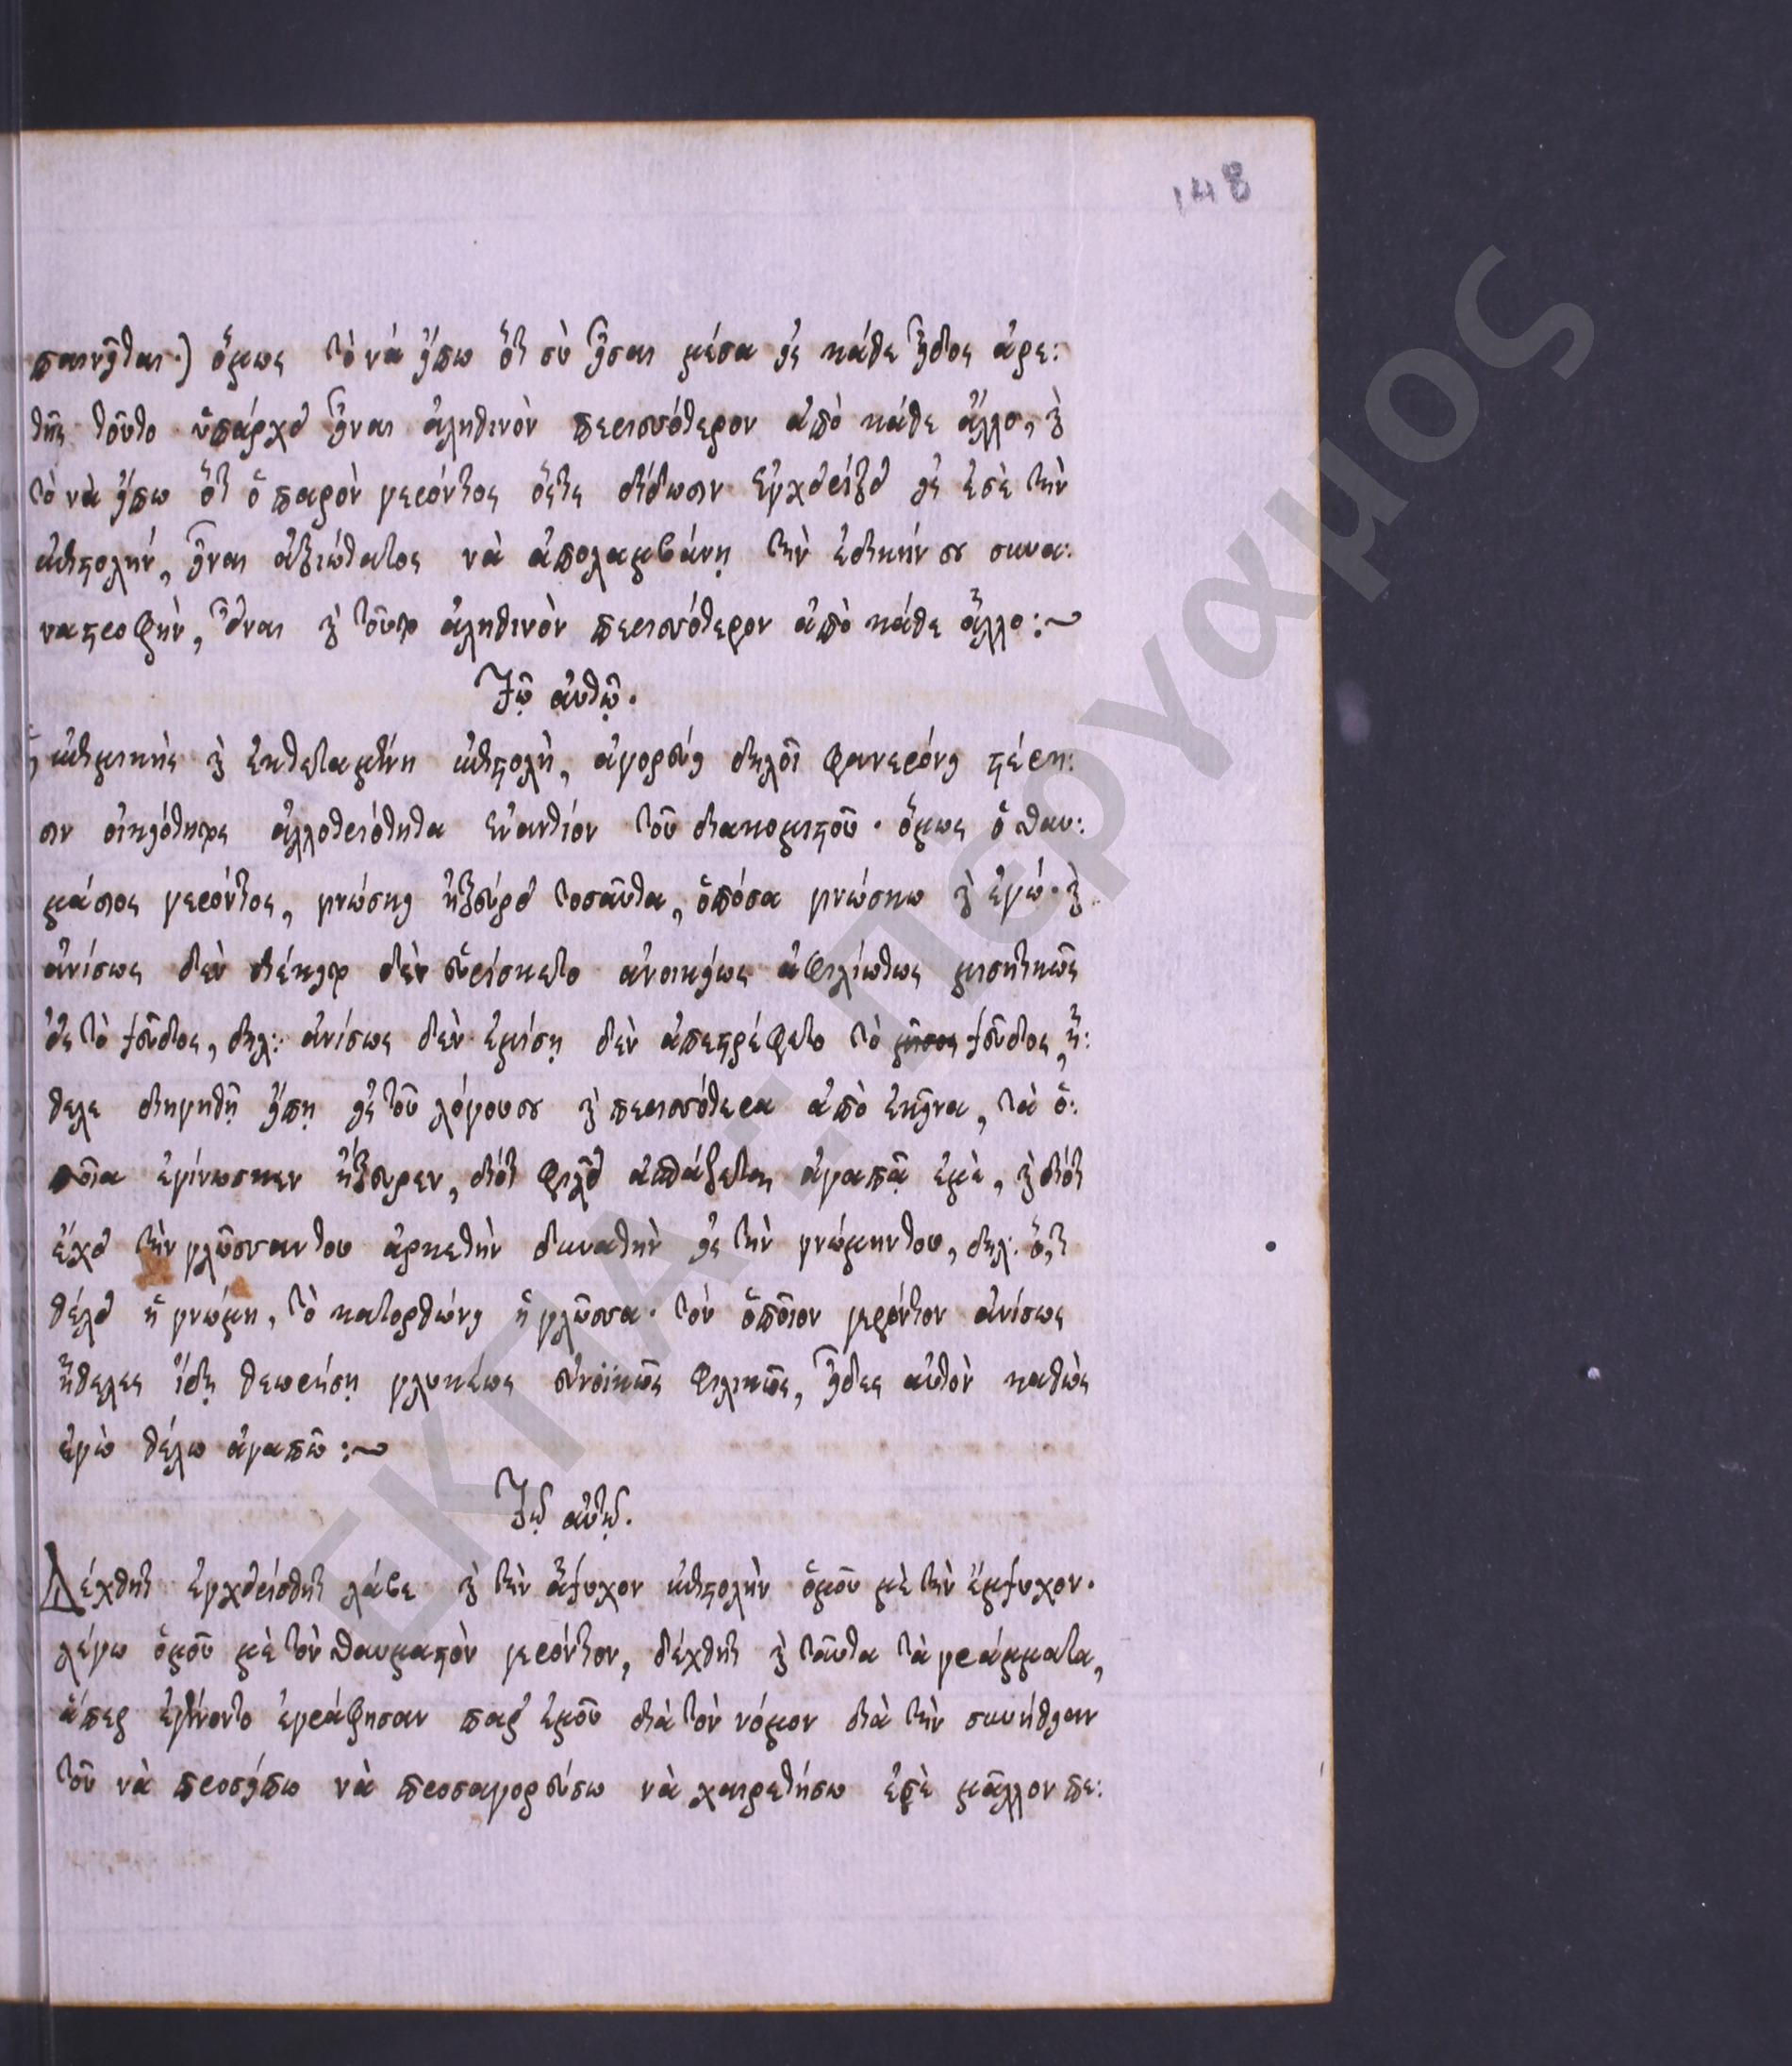 148
παινεῖται·) ὅμως τὸ νὰ εἴπω ὅτι σὺ εἶσαι μέσα εἰς κάθε εἶδος ἀρε:
τῆς τοῦτο ὑπάρχει εἶναι ἀληθινὸν περισσότερον ἀπὸ κάθε ἄλλο, καὶ
τὸ νὰ εἴπω ὅτι ὁ παρὸν γερόντος ὅστις δίδωσιν ἐγχειρίζει εἰς ἐσὲ τὴν
ἐπιστολήν, εἶναι ἀξιώτατος νὰ ἀπολαμβάνῃ τὴν ἐδικήν σου συνα:
ναστροφὴν, εἶναι καὶ τοῦτο ἀληθινὸν περισσότερον ἀπὸ κάθε ἄλλο:~
Τῷ αὐτῷ.
ἐπιμήκης καὶ ἐκτεταμένη ἐπιστολὴ, ἀγορεύει δηλοῖ φανερώνει στέρη:
σιν οἰκειότητος ἀλλοτριότητα ἐναντίον τοῦ διακομιστοῦ· ὅμως ὁ θαυ:
μάσιος γερόντος, γινώσκει ἠξεύρει τοσαῦτα, ὁπόσα γινώσκω καὶ ἐγώ· καὶ
ἀνίσως δὲν διέκειτο δὲν εὑρίσκετο ἀνοικείως ἀφιλιώτως μισητικῶς
εἰς τὸ ψεῦδος, δηλ: ἀνίσως δὲν ἐμίση δὲν ἀπεστρέφετο τὸ ψεῦδος, ἤ:
θελε διηγηθῇ εἴπῃ εἰς τοῦ λόγου σου καὶ περισσότερα ἀπὸ ἐκεῖνα, τὰ ὁ:
ποῖα ἐγίνωσκεν ἤξευρεν, διότι φιλεῖ ἀσπάζεται ἀγαπᾷ ἐμὲ, καὶ διότι
ἔχει τὴν γλῶσσαν του ἀρκετὴν δυνατὴν εἰς τὴν γνώμην του, δηλ: ὅ,τι
θέλει ἡ γνώμη, τὸ κατορθώνει ἡ γλῶσσα· τὸν ὁποῖον γερόντον ἀνίσως
ἤθελες ἴδῃ θεωρήσῃ γλυκέως εὐνοϊκῶς φιλικῶς, εἶδες αὐτὸν καθὼς
ἐγὼ θέλω ἀγαπῶ:~
Τῷ αὐτῷ.
Δέχθητι ἐγχειρίσθητι λάβε καὶ τὴν ἄψυχον ἐπιστολὴν ὁμοῦ μὲ τὴν ἔμψυχον·
λέγω ὁμοῦ μὲ τὸν θαυμαστὸν γερόντον, δέχθητι καὶ ταῦτα τὰ γράμματα,
ἅπερ ἐγίνοντο ἐγράφησαν παρ' ἐμοῦ διὰ τὸν νόμον διὰ τὴν συνήθειαν
τοῦ νὰ προσείπω νὰ προσαγορεύσω νὰ χαιρετήσω ἐσὲ μᾶλλον πε:
ΕΚΠΑ: Πέργαμος